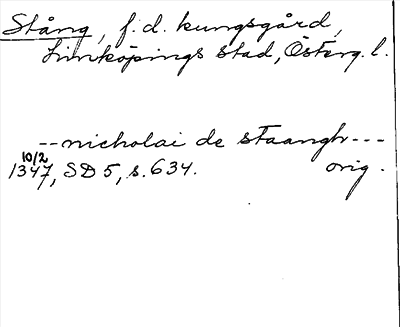 Stång, f.d. kungsgård,
Linköpings stad, Österg. l.
--nicholai de staangh---
10/2
1347, SD 5, s. 634. orig.